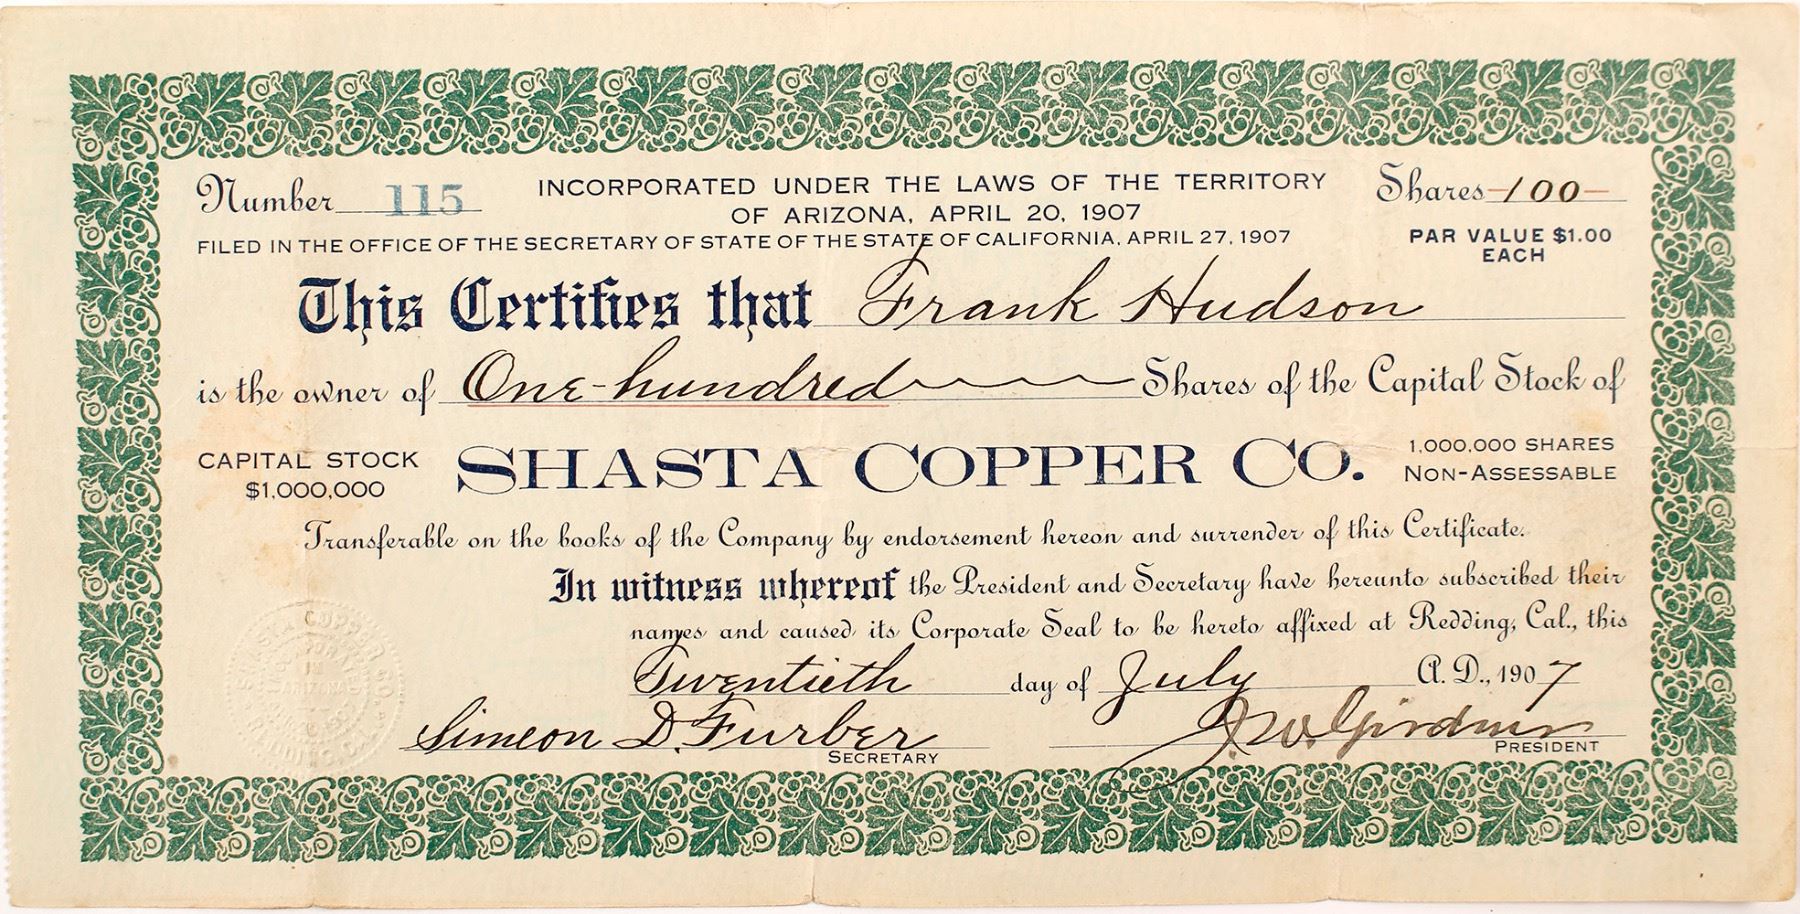 Number 115 INCORPORATED UNDER THE LAWS OF THE TERRITORY Shares 100
OF ARIZONA, APRIL 20, 1907
FILED IN THE OFFICE OF THE SECRETARY OF STATE OF THE STATE OF CALIFORNIA, APRIL 27, 1907
PAR VALUE $1.00
EACH
This Certifies that Frank Hudson
is the owner of One-hundred Shares of the Capital Stock of
CAPITAL STOCK
$1,000,000
SHASTA COPPER CO.
1,000,000 SHARES
NON-ASSESSABLE
Transferable on the books of the Company by endorsement hereon and surrender of this Certificate.
In witness whereof the President and Secretary have hereunto subscribed their
names and caused its Corporate Seal to be hereto affixed at Redding, Cal., this
Twentieth day of July A.D., 1907
Simeon D. Furber
SECRETARY
PRESIDENT
SHASTA COPPER CO.
INCORPORATED
IN
ARIZONA